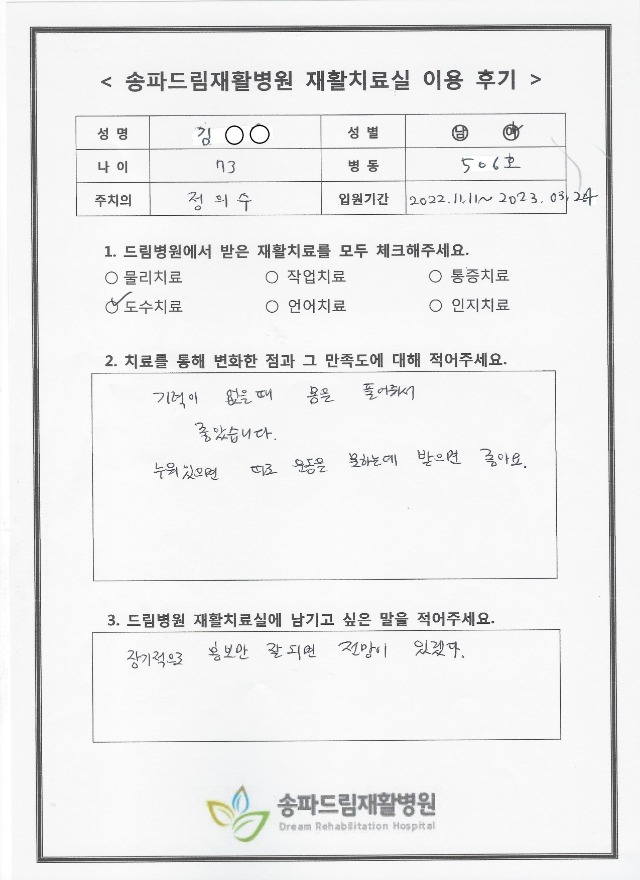 < 송파드림재활병원 재활치료실 이용 후기 >
성 명 김 ○○ 성 별 남 여
나 이 73 병 동 506호
주치의 정의수 입원기간 2022.11.11~ 2023.03.24
1. 드림병원에서 받은 재활치료를 모두 체크해주세요.
○ 물리치료 ○ 작업치료 ○ 통증치료
○ 도수치료 ○ 언어치료 ○ 인지치료
2. 치료를 통해 변화한 점과 그 만족도에 대해 적어주세요.
기력이 없을때 몸은 풀어줘서
좋았습니다.
누워있으면 따로 운동을 못하는데 받으면 좋아요.
3. 드림병원 재활치료실에 남기고 싶은 말을 적어주세요.
장기적으로 홍보만 잘되면 전망이 있겠다.
송파드림재활병원
Dream Rehabilitation Hospital